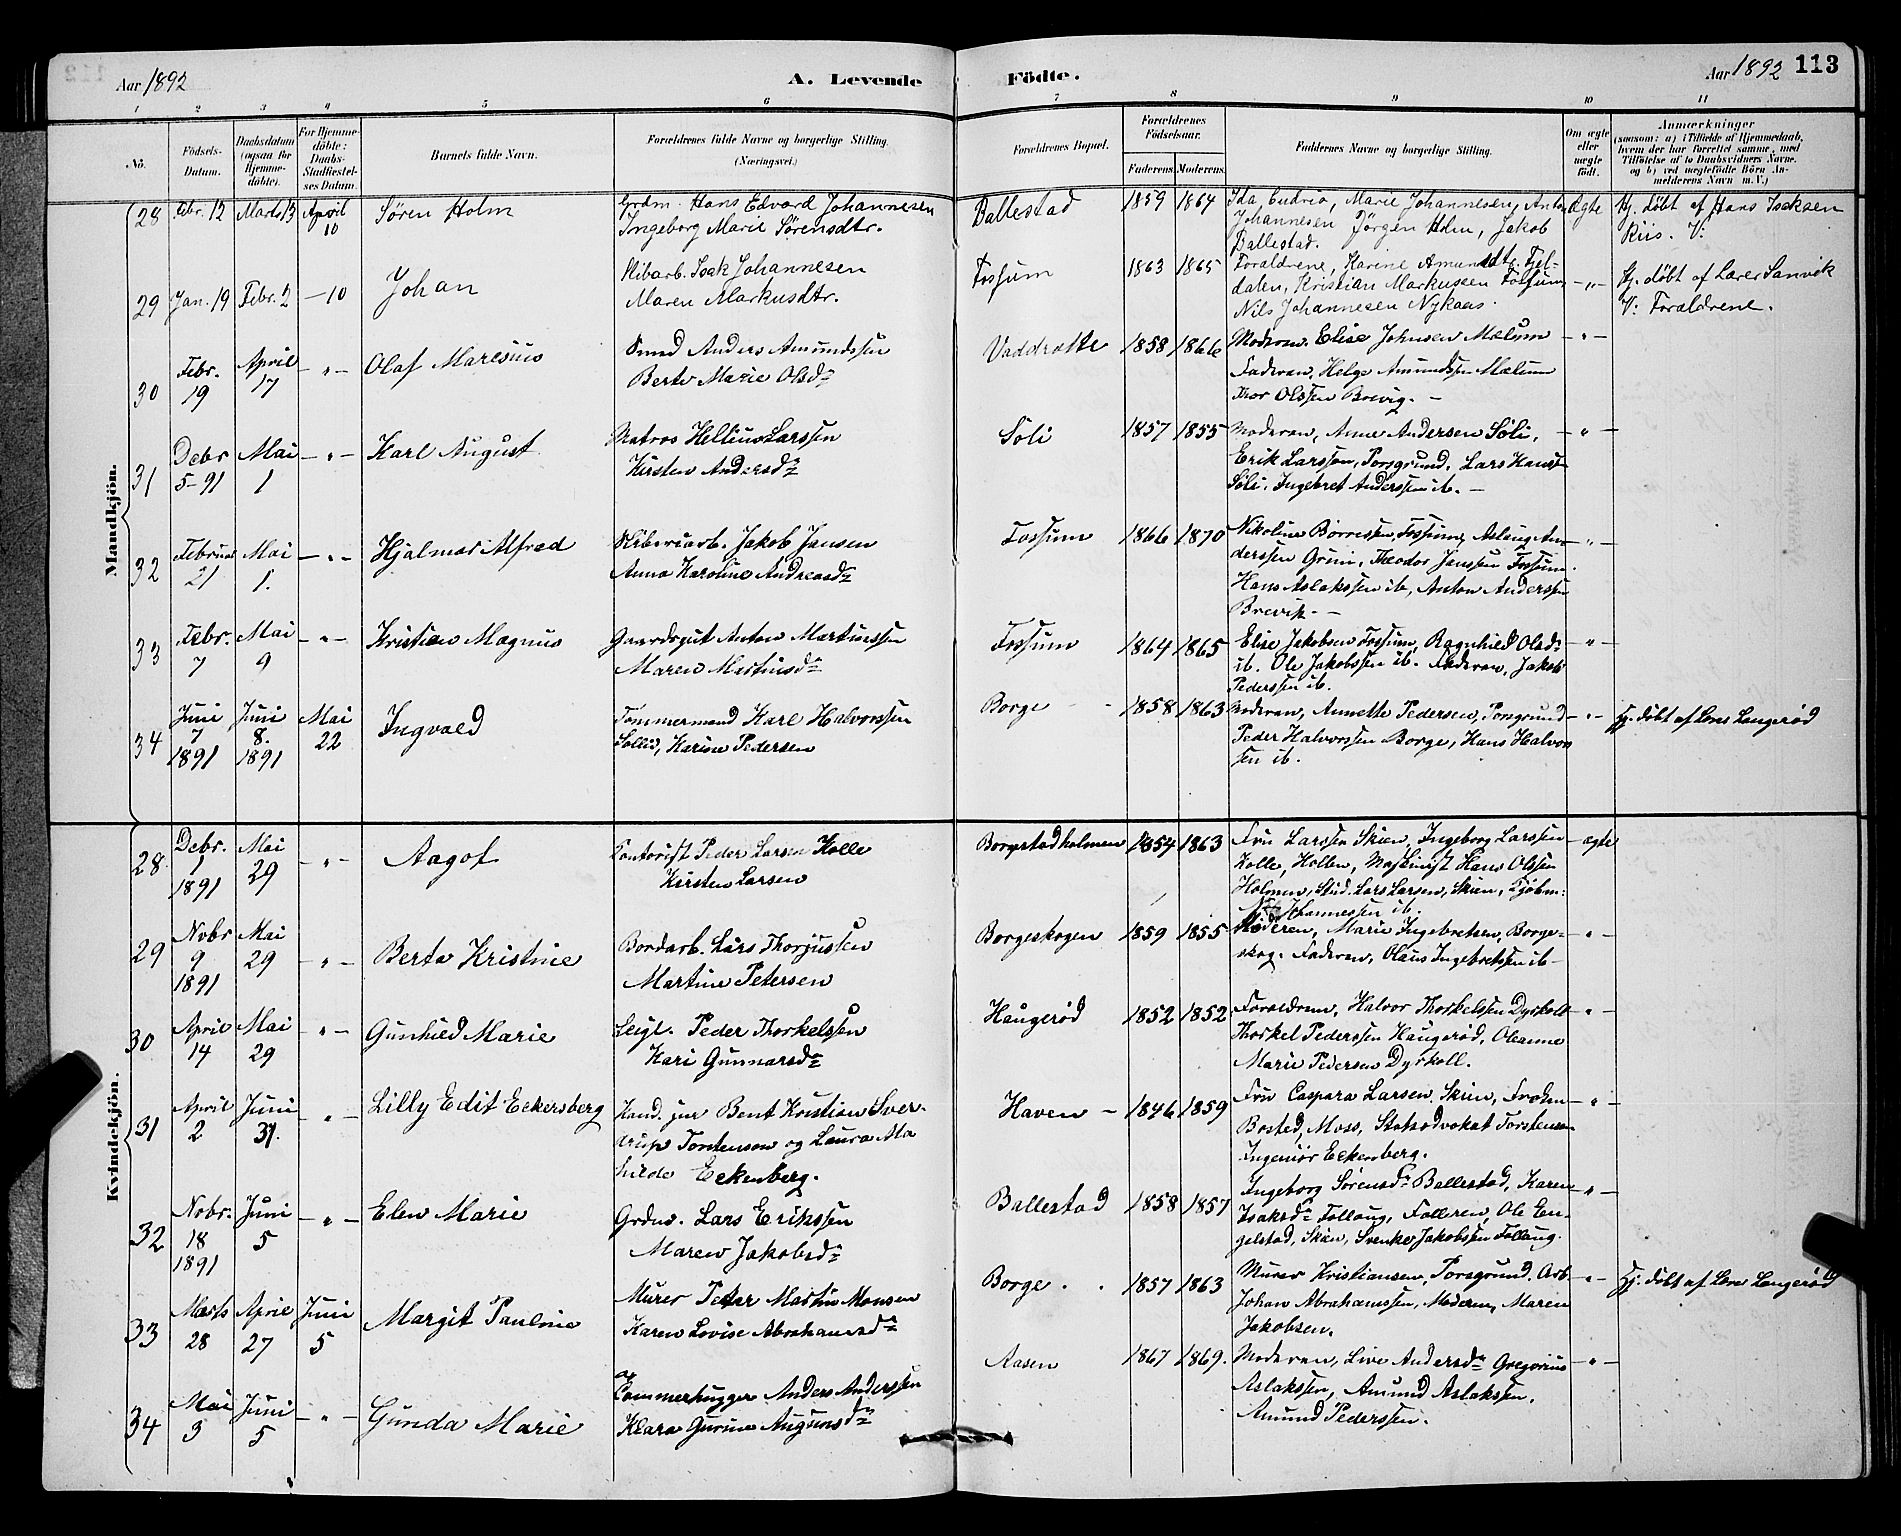 Aar 1892
A. Levende
Födte.
Aar 1892 113
1 2 3 4 5 6 7 8 9 10 11
No.
Födsels-
Datum.
Daabsdatum
(ogsaa for
Hjemme-
döbte).
For Hjemme-
döbte:
Daabs-
Stadfæstel-
ses Datum.
Barnets fulde Navn.
Forældrenes fulde Navne og borgerlige Stilling.
(Næringsvei.)
Forældrenes Bopæl.
Forældrenes
Födselsaar.
Faderens.
Moderens.
Faddernes Navne og borgerlige Stilling.
Om ægte
eller
uægte
födt.
Anmærkninger
(saasom: a) i Tilfælde af Hjemmedaab,
hvem der har forrettet samme, med
Tilföielse af to Daabsvidners Navne,
og b) ved uægtefödte Börn An-
melderens Navn m. V.)
Mandkjön.
28 Febr. 12 Marts 13 April 10 Sören Holm
Grdm. Hans Edvard Johannesen
Ingeborg Marie Sörensdtr.
Ballestad 1859 1864
Marie Johannesen, Anton
Johannesen Jörgen Holm, Jakob
Ballestad.
Ægte
Hj. döbt af Hans Isaksen
Riis. V:
29 Jan. 19 Febr. 2 — 10 Johan
Isak Johannesen
Maren Markusdtr.
Fossum 1863 1865
Forældrene, Karine Amundsdtr. Fjel-
dalen, Kristian Markussen Fossum,
Nils Johannesen Nykaas.
— „ —
Hj. döbt af Lærer Sanvik
V: Forældrene.
30 Febr. 19 April 17 — „ — Olaf Maresius
Smed Anders Amundssen
Berte Marie Olsdr
Vaddrette 1858 1866
Moderen, Elise Johnsen Mælum
Faderen, Helge Amundssen Mælum
Thor Olssen Brevig. —
— „ —
31 Debr 5-91 Mai 1 — „ — Karl August
Matros Hellius Larssen
Kirsten Andersdr
Söli 1857 1855
Moderen, Anne Andersen Söli,
Erik Larssen, Porsgrund, Lars Hanss
Söli, Ingebret Anderssen ib. —
— „ —
32 Februar 21 Mai 1. — „ — Hjalmar Alfred
Jakob Jansen
Anna Karoline Andreasdr
Fossum 1866 1870
Nikoline Börressen, Fossum, Aslaug An-
derssen Grini, Theodor Janssen Fossum.
Hans Aslakssen ib, Anton Anderssen
Brevik. —
— „ —
33 Febr. 7 Mai 9 — „ — Kristian Magnus
Gaardsgut Anton Martinssen
Maren Martinsdr
Fossum 1864 1865
Elise Jakobsen Fossum, Ragnhild Olsdr
ib. Ole Jakobssen ib. Faderen, Jakob
Pederssen ib.
— „ —
34 Juni 7 1891 Juni 8. 1891 Mai 22 Ingvald
Tømmermand Karl Halvorssen
Sollid, Karine Pedersen
Borge — 1858 1863
Moderen, Annette Pedersen, Porsgrund
Peder Halvorssen Borge, Hans Halvors
sen ib.
— „ —
Hj. döbt af Lærer Langeröd
Kvindekjön.
28 Debr. 1 1891 Mai 29 — „ — Aagot
Kontorist Peder Larsen Kolle
Kirsten Larsen
Borgestadholmen 1854 1863
Fru Larssen Skien, Ingeborg Larssen
Kolle, Hollen, Maskinist Hans Olssen
Holmen, Stud. Lars Larsen, Skien, Kjöbm:
Johannessen ib.
— ægte
29 Nobr 9 1891 Mai 29 — „ — Berte Kristine
Bordarb. Lars Thorjussen
Martine Petersen
Borgeskogen 1859 1855
Moderen, Marie Ingebretsen, Borge-
skog. Faderen, Olaus Ingebretsen ib —
— „ —
30 April 14 Mai 29 — „ — Gunhild Marie
Leigl. Peder Thorkelssen
Kari Gunnarsdr
Haugeröd 1852 1852
Forældrene, Halvor Thorkelssen Dyrkoll
Thorkel Pederssen Haugeröd, Oleanne
Marie Pedersen Dyrkoll.
— „ —
31 April 2 Juni 31. — „ — Lilly Edit Eckersberg
Kand. jur Bent Kristian Sver-
drup Torstenson og Laura Ma
thilde Eckersberg.
Haven — 1846 1859
Fru Caspara Larsen, Skien, Froken
Bosted, Moss, Statsadvokat Torstenson
Ingeniör Eckersberg.
— „ —
32 Nobr. 18 1891 Juni 5 — „ — Elen Marie
Grdm. Lars Erikssen
Maren Jakobsdr
Ballestad 1858 1857
Ingeborg Sörensdr Ballestad, Karen
Isaksdr Follaug, Faderen, Ole En-
gelstad, Skien, Svenke Jakobssen Follaug.
— „ —
33 Marts 28 April 27 Juni 5 Margit Pauline
Murer Peter Martin Monsen
Karen Lovise Abrahamsdr
Borge. . 1857 1863
Murer Kristiansen, Porsgrund. Arb.
Johan Abrahamssen, Moderen, Maren
Jakobsen.
— „ —
Hj. döbt af Lærer Langeröd
34 Mai 3 Juni 5 — „ — Gunda Marie
Tømmerhugger Anders Anderssen
Klara Gurine Augunsdr
Aasen 1867 1869.
Moderen, Live Andersdr Gregorius
Aslakssen, Amund Aslakssen,
Amund Pederssen.
— „ —